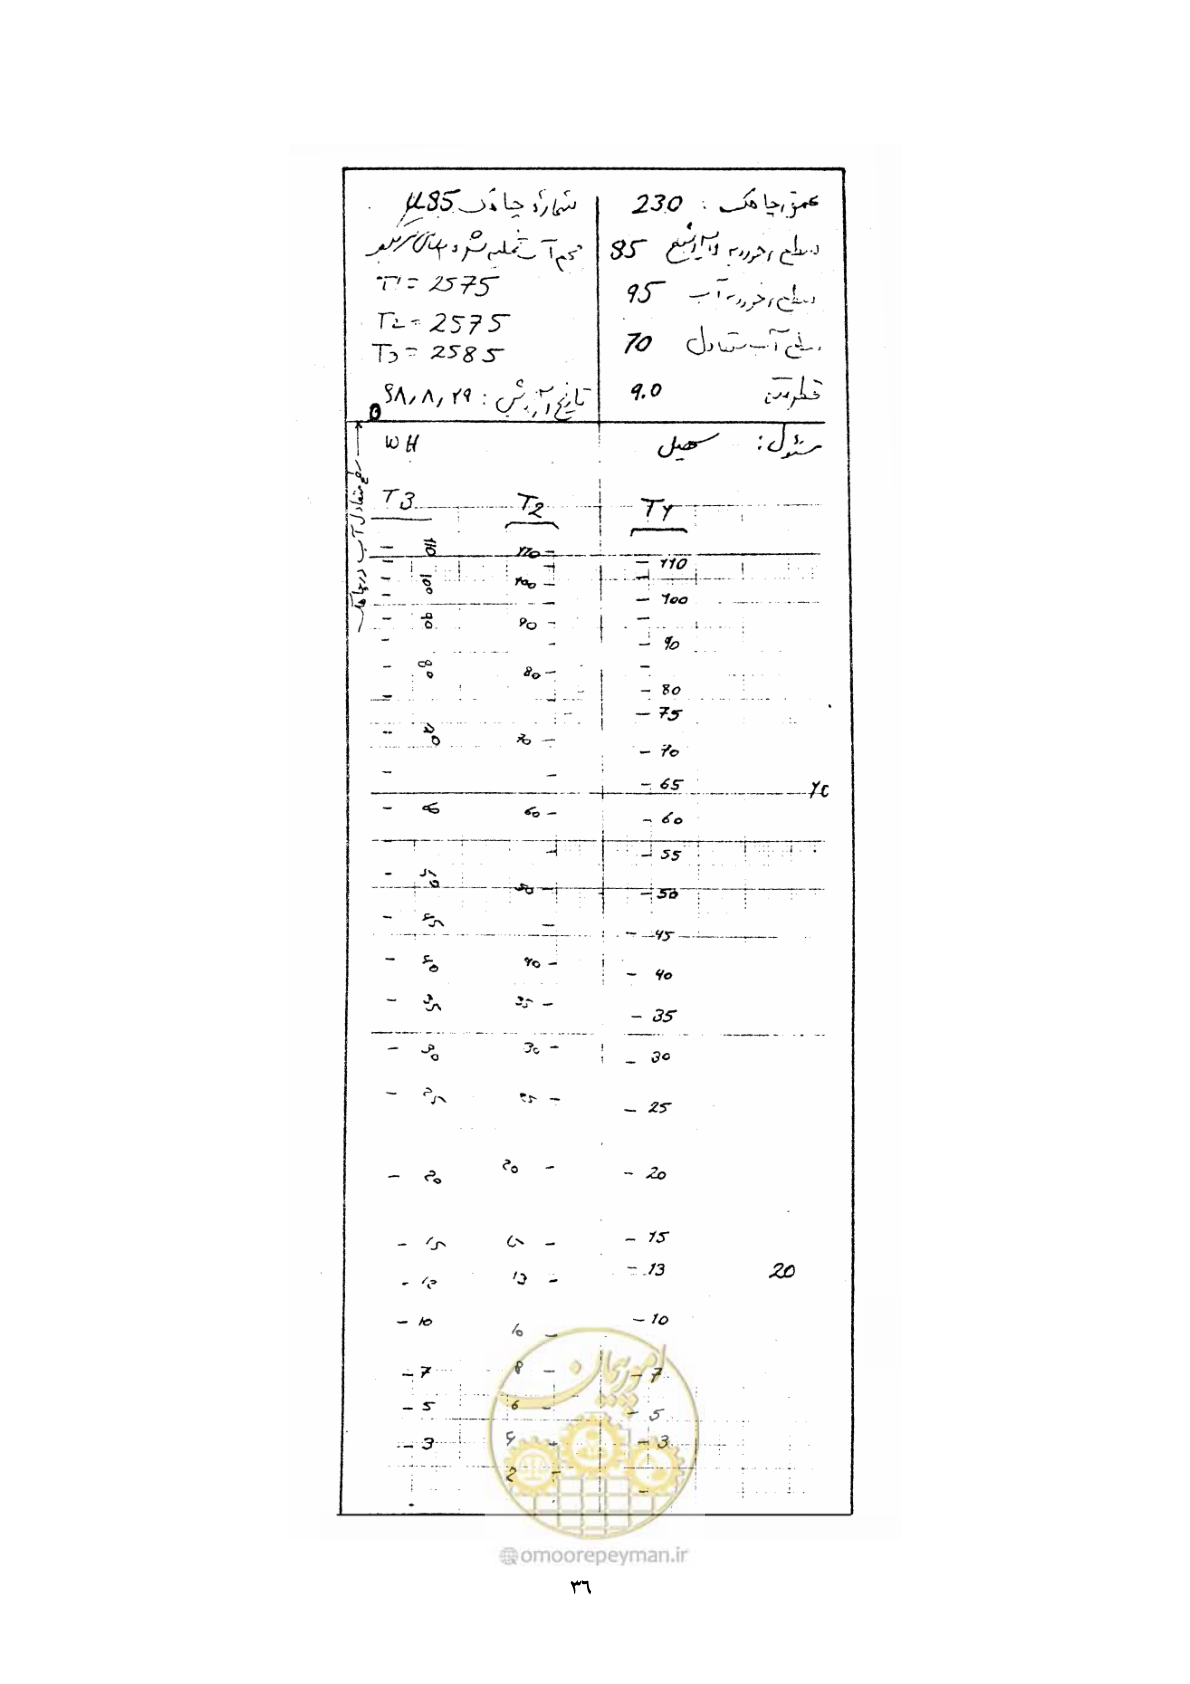 عمق چاهک : 230
شماره چاهک µ85
سطح برخورد به لایه اشباع 85
حجم آب تخلیه شده
T1 = 2575
سطح برخورد به آب 95
T2 = 2575
سطح آب متعادل 70
T3 = 2585
قطر مته 9.0
تاریخ آزمایش : ۶۸٫۸٫۲۹
0
مسئول : سهیل
WH
سطح متعادل آب در چاهک
T3 T2 T1
110 110 110
100 100 100
90 90 90
80 80 80
75
70 70 70
65
10
60 60 60
55
50 50 50
45 45
40 40 40
35 35 35
30 30 30
25 25 25
20 20 20
15 15 15
12 13 13
20
10 10 10
7 8 7
5 6 5
3 4 3
2
امور پیمان
@omoorepeyman.ir
٣٦